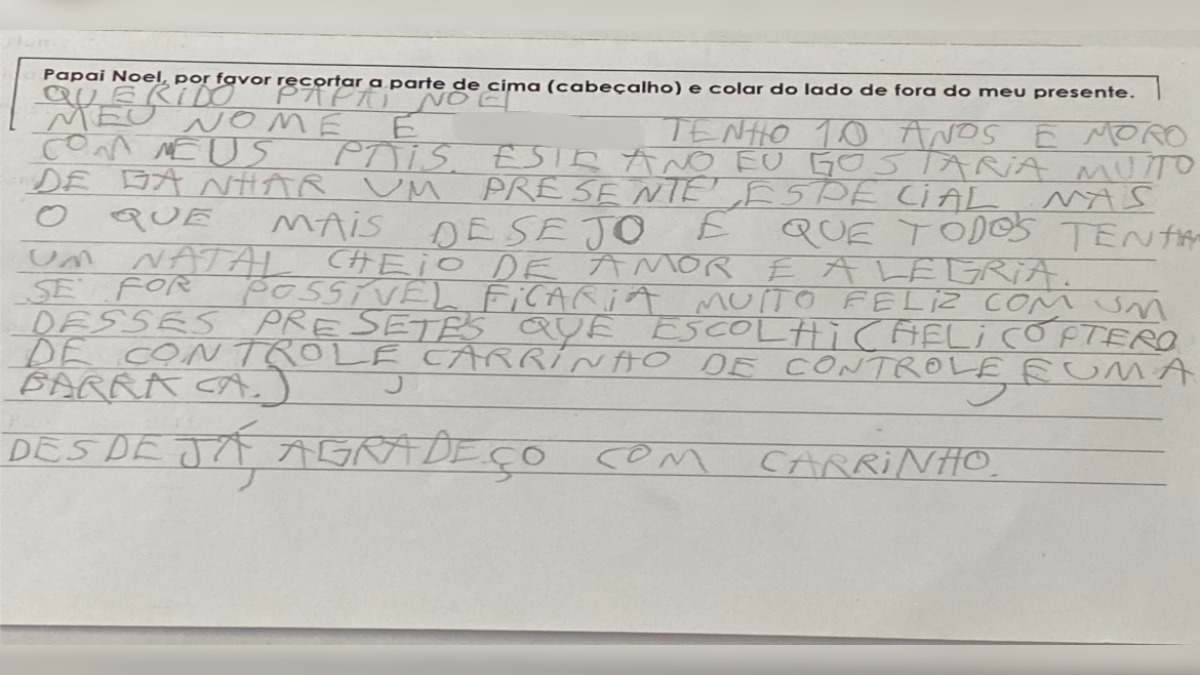 Papai Noel, por favor recortar a parte de cima (cabeçalho) e colar do lado de fora do meu presente.
QUERIDO PAPAI NOEL
MEU NOME É TENHO 10 ANOS E MORO
COM MEUS PAIS. ESTE ANO EU GOSTARIA MUITO
DE GANHAR UM PRESENTE, ESPECIAL MAS
O QUE MAIS DESEJO É QUE TODOS TENHAM
UM NATAL CHEIO DE AMOR E ALEGRIA.
SE FOR POSSÍVEL FICARIA MUITO FELIZ COM UM
DESSES PRESETES QUE ESCOLHI (HELICÓPTERO
DE CONTROLE, CARRINHO DE CONTROLE, E UMA
BARRACA.)
DESDE JÁ, AGRADEÇO COM CARRINHO.